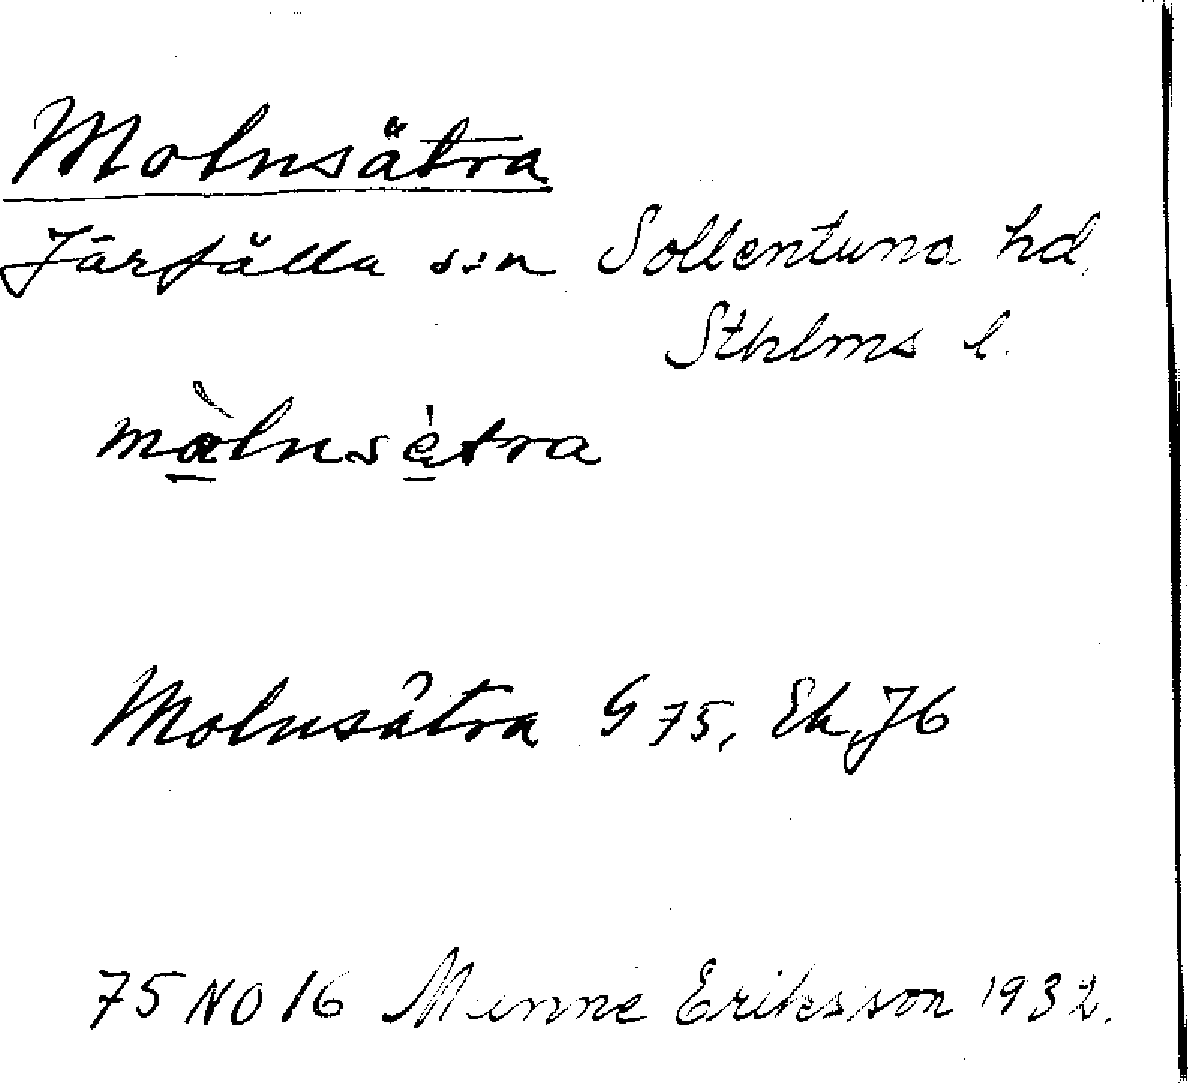 Molnsätra
Järfälla s:n Sollentuna hd.
Sthlms l.
mὰlnsętra
Molnsätra G 75, Ek, J6
75 NO 16 Manne Eriksson 1932.